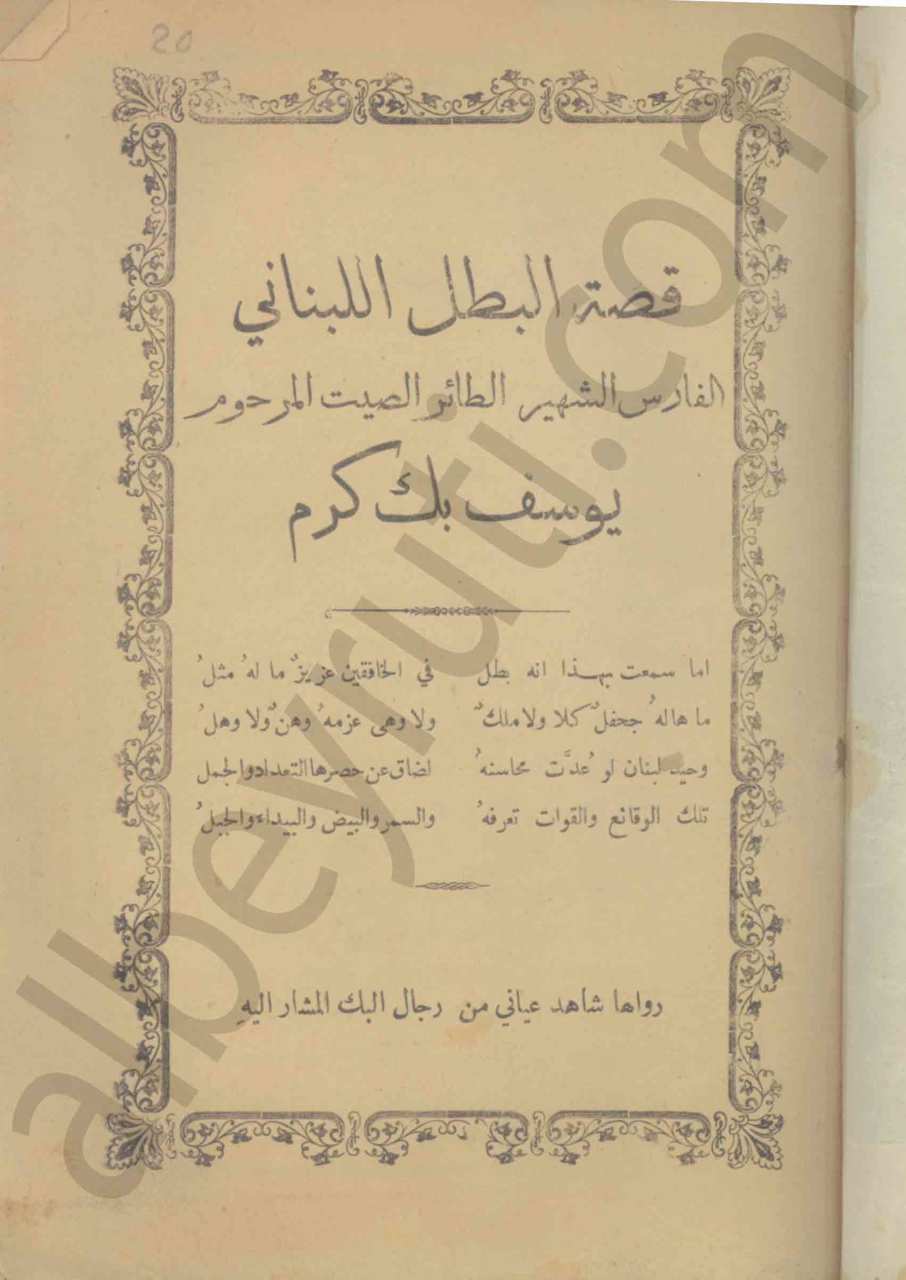 20
قصة البطل اللبناني
الفارس الشهير الطائر الصيت المرحوم
يوسف بك كرم
اما سمعت بهذا انه بطل في الخافقين عزيزٌ ما لهُ مثلُ
ما هالهُ جحفلٌ كلا ولا ملكٌ ولا وهى عزمهُ وهنٌ ولا وهلُ
وحيد لبنان لو عُدَّت محاسنهُ لضاق عن حصرها التعداد والجمل
تلك الوقائع والقوات تعرفهُ والسمر والبيض والبيداء والجبلُ
رواها شاهد عياني من رجال البك المشار اليهِ
albeyruti.com